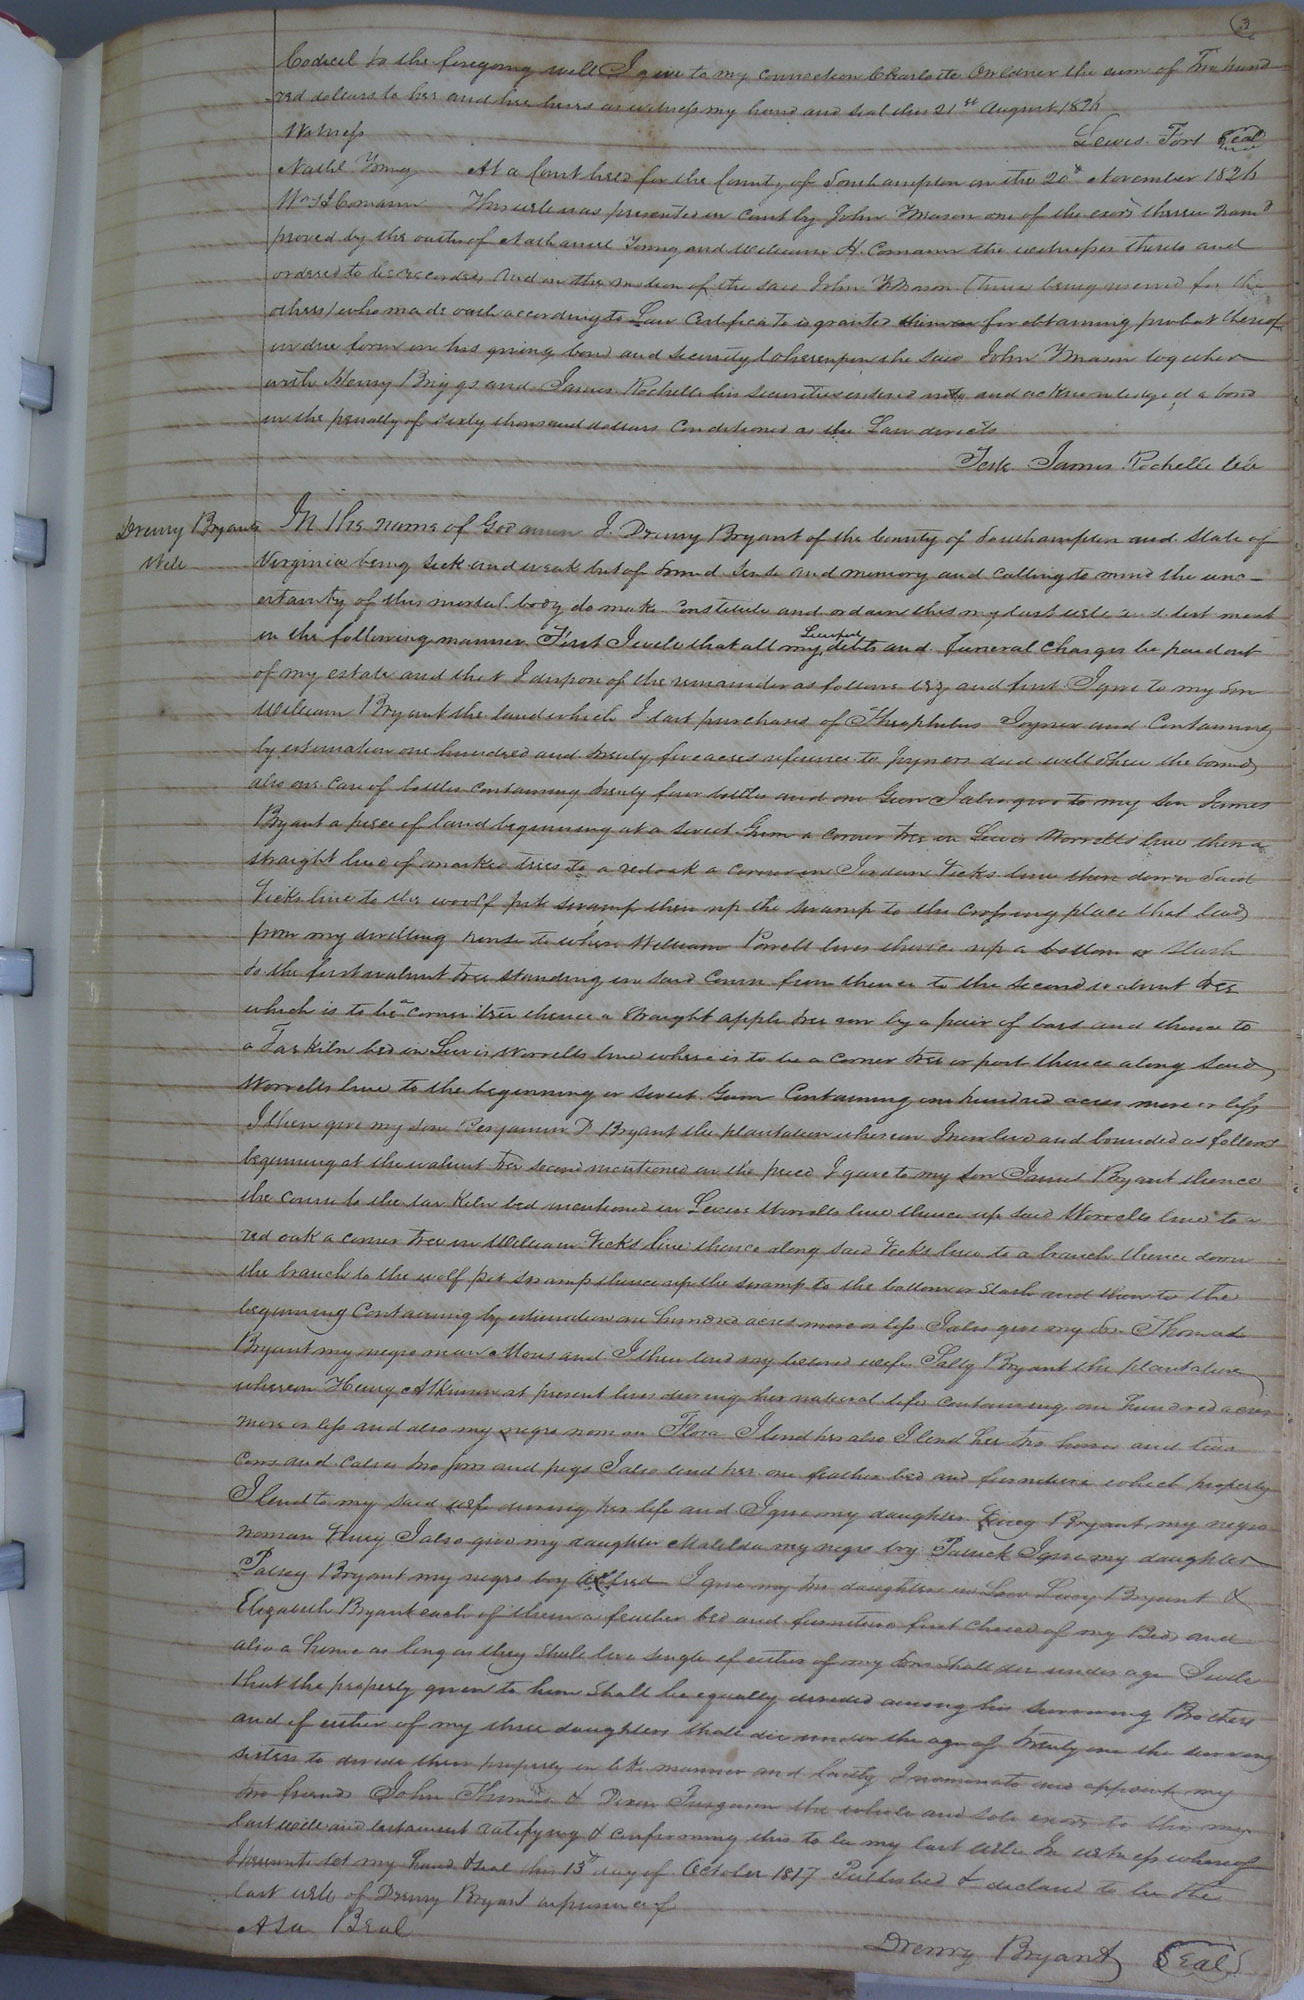 3
Codicil to the foregoing will I give to my connection Charlotte the sum of two hund
red dollars to her and her heirs as witness my hand and seal this 21st August 1826
Witness
Lewis Fort Seal
Nathl Young At a Court held for the County of Southampton on the 20th November 1826
Wm H Comann This will was presented in Court by John Y Mason one of the exors therein namd
proved by the oaths of Nathaniel Young and William H. Comann the witnesses thereto and
ordered to be recorded And on the motion of the said John Y Mason (there being reserved for the
others) who made oath according to Law Certificate is granted him for obtaining probat thereof
in due form on his giving bond and security Whereupon the said John Y Mason together
with Henry Briggs and James Rochelle his securities entered into and acknowledged a bond
in the penalty of sixty thousand dollars Conditioned as the Law directs
Teste James Rochelle
Drewry Bryants
Will
In the name of God amen I Drewry Bryant of the County of Southampton and State of
Virginia being sick and weak but of sound sense and memory and calling to mind the unc-
ertainty of this mortal body do make Constitute and ordain this my last will and testament
in the following manner. First I will that all my Lawful debts and funeral charges be paid out
of my estate and that I dispose of the remainder as follows viz and first I give to my son
William Bryant the land which I last purchased of Theophilus Joyner and Containing
by estimation one hundred and twenty five acres reference to Joyners deed will shew the bounds
also one case of bottles containing twenty four bottles and one Gun I also give to my son James
Bryant a piece of land beginning at a sweet Gum a corner tree in Lewis Worrells line then a
straight line of marked trees to a red oak a corner in Jordan Vicks line then down said
Vicks line to the woolf pit swamp then up the swamp to the crossing place that leads
from my dwelling house to where William Powell lives thence up a bottom or slash
to the first walnut tree standing in said Course from thence to the second walnut tree
which is to be a corner tree thence a straight apple tree row by a pair of bars and thence to
a Tar Kiln bed in Lewis Worrells line where is to be a corner tree or post thence along said
Worrells line to the beginning or sweet Gum Containing one hundred acres more or less
I then give my son Benjamin D Bryant the plantation wherein I now live and bounded as follows
beginning at the walnut tree second mentioned in the piece I gave to my son James Bryant thence
the course to the tar Kiln bed mentioned in Lewis Worrells line thence up said Worrells line to a
red oak a corner tree in William Vicks line thence along said Vicks line to a branch thence down
the branch to the wolf pit swamp thence up the swamp to the bottom or slash and then to the
beginning Containing by estimation one hundred acres more or less I also give my son Thomas
Bryant my negro man Moses and I then lend my beloved wife Sally Bryant the plantation
wherein Henry Atkinson at present lives during her natural life containing one hundred acres
more or less and also my negro woman Flora I lend her also I lend her two horses and
cows and calves two sows and pigs I also lend her one feather bed and furniture which property
I lend to my said wife during her life and I give my daughter Lucey Bryant my negro
woman I also give my daughter Matilda my negro boy Patrick I give my daughter
Patsey Bryant my negro boy Alfred I give my two daughters in Law Lucy Bryant &
Elizabeth Bryant each of them a feather bed and furniture first choice of my Beds and
also a home as long as they shall live single if either of my sons shall die under age I will
that the property given to him shall be equally divided among his surviving Brothers
and if either of my three daughters shall die under the age of twenty one the surviving
sisters to divide their property in like manner and lastly I nominate and appoint my
two friends John Thomas & Dixon Ferguson the whole and sole exors to this my
last will and testament ratifying & confirming this to be my last will In witness whereof
I hereunto set my hand & seal this 13th day of October 1817 Published & declared to be the
last will of Drewry Bryant in presence of
Asa Beal
Drewry Bryant Seal